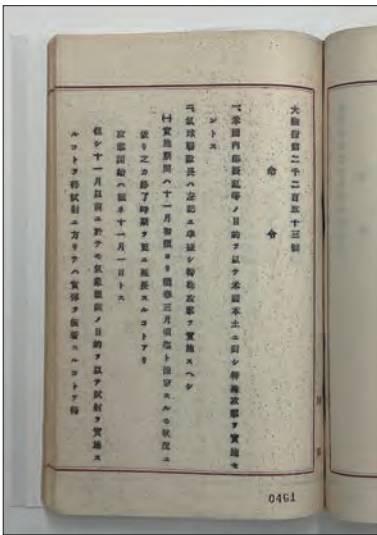 大陸指第二千二百五十三號
命令
一、米國內部攪亂等ノ目的ヲ以テ米國本土ニ對シ特殊攻擊ヲ實施セ
ントス
二、氣球聯隊長ハ左記ニ準據シ特殊攻擊ヲ實施スヘシ
(一)實施期間ハ十一月初頭ヨリ明春三月頃迄ト豫定スルモ狀況ニ
依リ之カ終了時期ヲ更ニ延長スルコトアリ
攻擊開始ハ槪ネ十一月一日トス
但シ十一月以前ニ於テモ氣象觀測ノ目的ヲ以テ試射ヲ實施ス
ルコトヲ得試射ニ方リテハ實彈ヲ裝著スルコトヲ得
0461